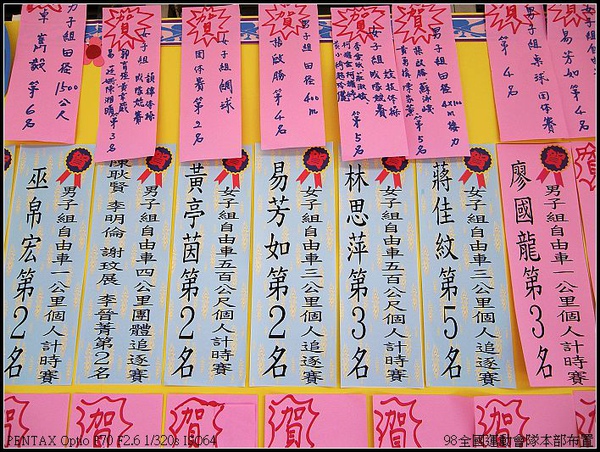 賀
易芳如第4名
男子組桌球團體賽
第4名
賀
男子組田徑4x100m接力
第5名
賀
女子組競技體操
成隊競賽
第5名
賀
男子組田徑400m
啟勝 第4名
賀
女子組網球
團體賽第2名
賀
女子組韻律體操
成隊競賽
第3名
男子組田徑1500公尺
第6名
賀
男子組自由車一公里個人計時賽
廖國龍第3名
賀
女子組自由車三公里個人追逐賽
蔣佳紋第5名
賀
女子組自由車五百公尺個人計時賽
林思萍第3名
賀
女子組自由車三公里個人追逐賽
易芳如第2名
賀
女子組自由車五百公尺個人計時賽
黃亭茵第2名
賀
男子組自由車四公里團體追逐賽
陳耿賢 李明倫 謝玟展 李晉菁第2名
賀
男子組自由車一公里個人計時賽
巫帛宏第2名
賀
賀
賀
賀
賀
賀
PENTAX Optio E70 F2.6 1/320s ISO64
98全國運動會隊本部布置